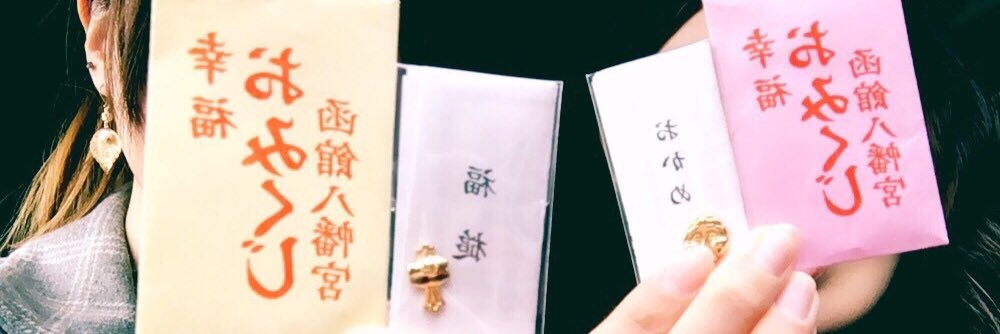 函館八幡宮
おみくじ
幸福
福槌
おかめ
函館八幡宮
おみくじ
幸福